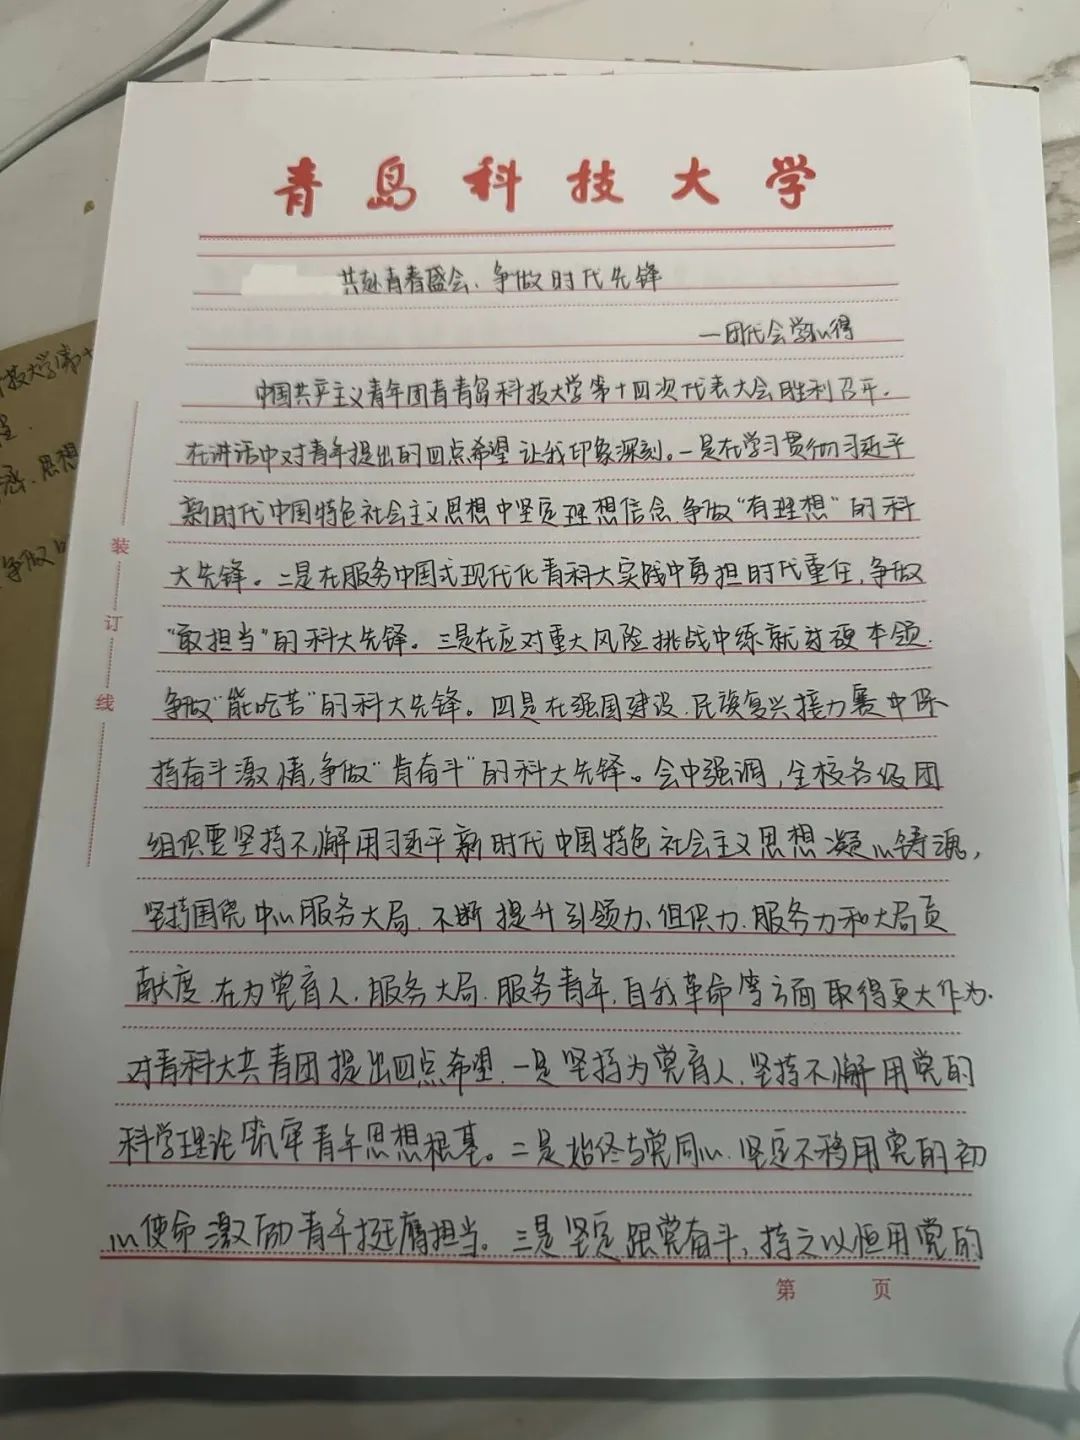 青岛科技大学
共赴青春盛会、争做时代先锋
—团代会学习心得
中国共产主义青年团青青岛科技大学第十四次代表大会胜利召开.
在讲话中对青年提出的四点希望让我印象深刻。一是在学习贯彻习近平
新时代中国特色社会主义思想中坚定理想信念,争做“有理想”的科
大先锋。二是在服务中国式现代化青科大实践中勇担时代重任,争做
“敢担当”的科大先锋。三是在应对重大风险挑战中练就过硬本领.
争做“能吃苦”的科大先锋。四是在强国建设.民族复兴接力赛中保
持奋斗激情,争做“肯奋斗”的科大先锋。会中强调,全校各级团
组织要坚持不懈用习近平新时代中国特色社会主义思想凝心铸魂,
坚持围绕中心服务大局.不断提升引领力、组织力.服务力和大局贡
献度.在为党育人.服务大局.服务青年,自我革命等方面取得更大作为.
对青科大共青团提出四点希望.一是坚持为党育人.坚持不懈用党的
科学理论筑牢青年思想根基。二是始终与党同心.坚定不移用党的初
心使命激励青年挺膺担当。三是坚定跟党奋斗,持之以恒用党的
装
订
线
第 页
技大学第十
思想
争做